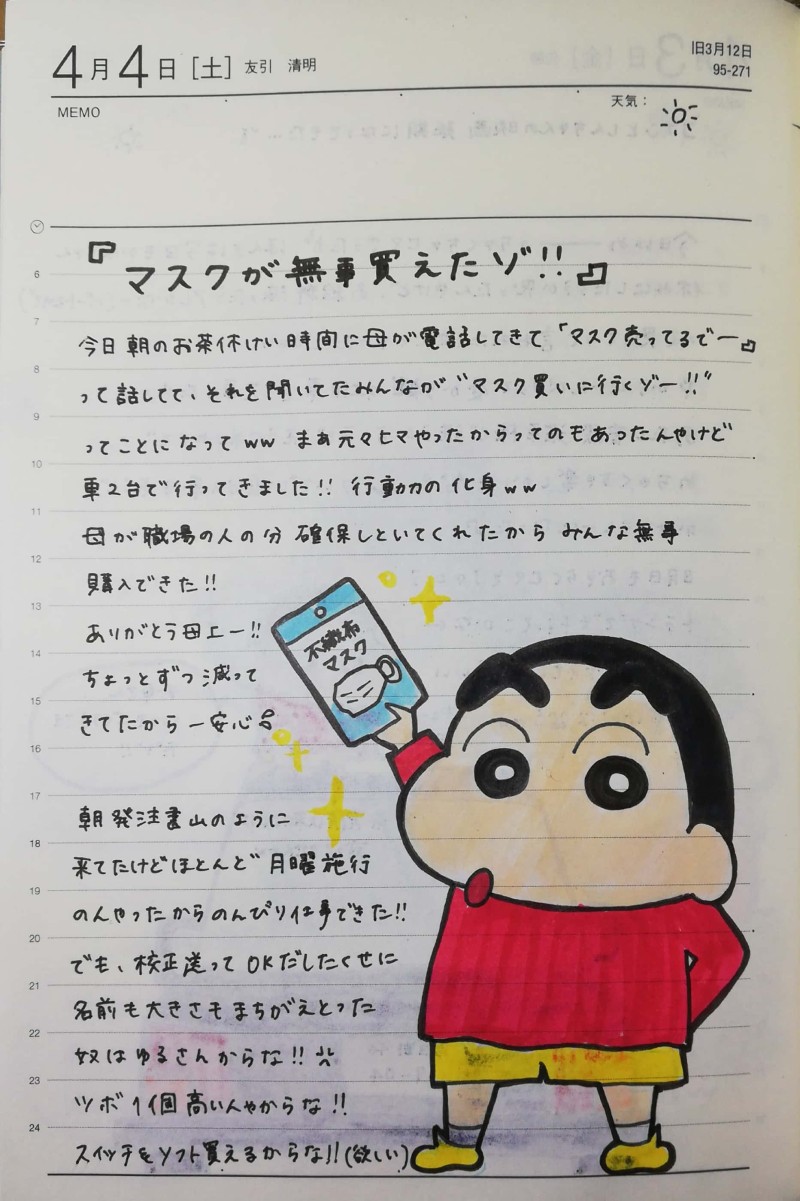 4月4日[土] 友引 清明
旧3月12日
95-271
MEMO
天気：
『マスクが無事買えたゾ!!』
6
7
今日朝のお茶休けい時間に母が電話してきて「マスク売ってるでー」
8
って話してて、それを聞いてたみんなが"マスク買いに行くゾー!!"
9
ってことになってww まぁ元々ヒマやったからってのもあったんやけど
10
車2台で行ってきました!! 行動力の化身ww
11
母が職場の人の分確保しといてくれたから みんな無事
12
購入できた!!
13
ありがとう母上ー!!
14
ちょっとずつ減って
15
きてたから一安心
16
不織布
マスク
17
朝発注書山のように
18
来てたけどほとんど月曜施行
19
のんやったからのんびり仕事できた!!
20
でも、校正送ってOKだしたくせに
21
名前も大きさもまちがえとった
22
奴はゆるさんからな!!
23
ツボ1個高いんやからな!!
24
スイッチもソフト買えるからな!!(欲しい)